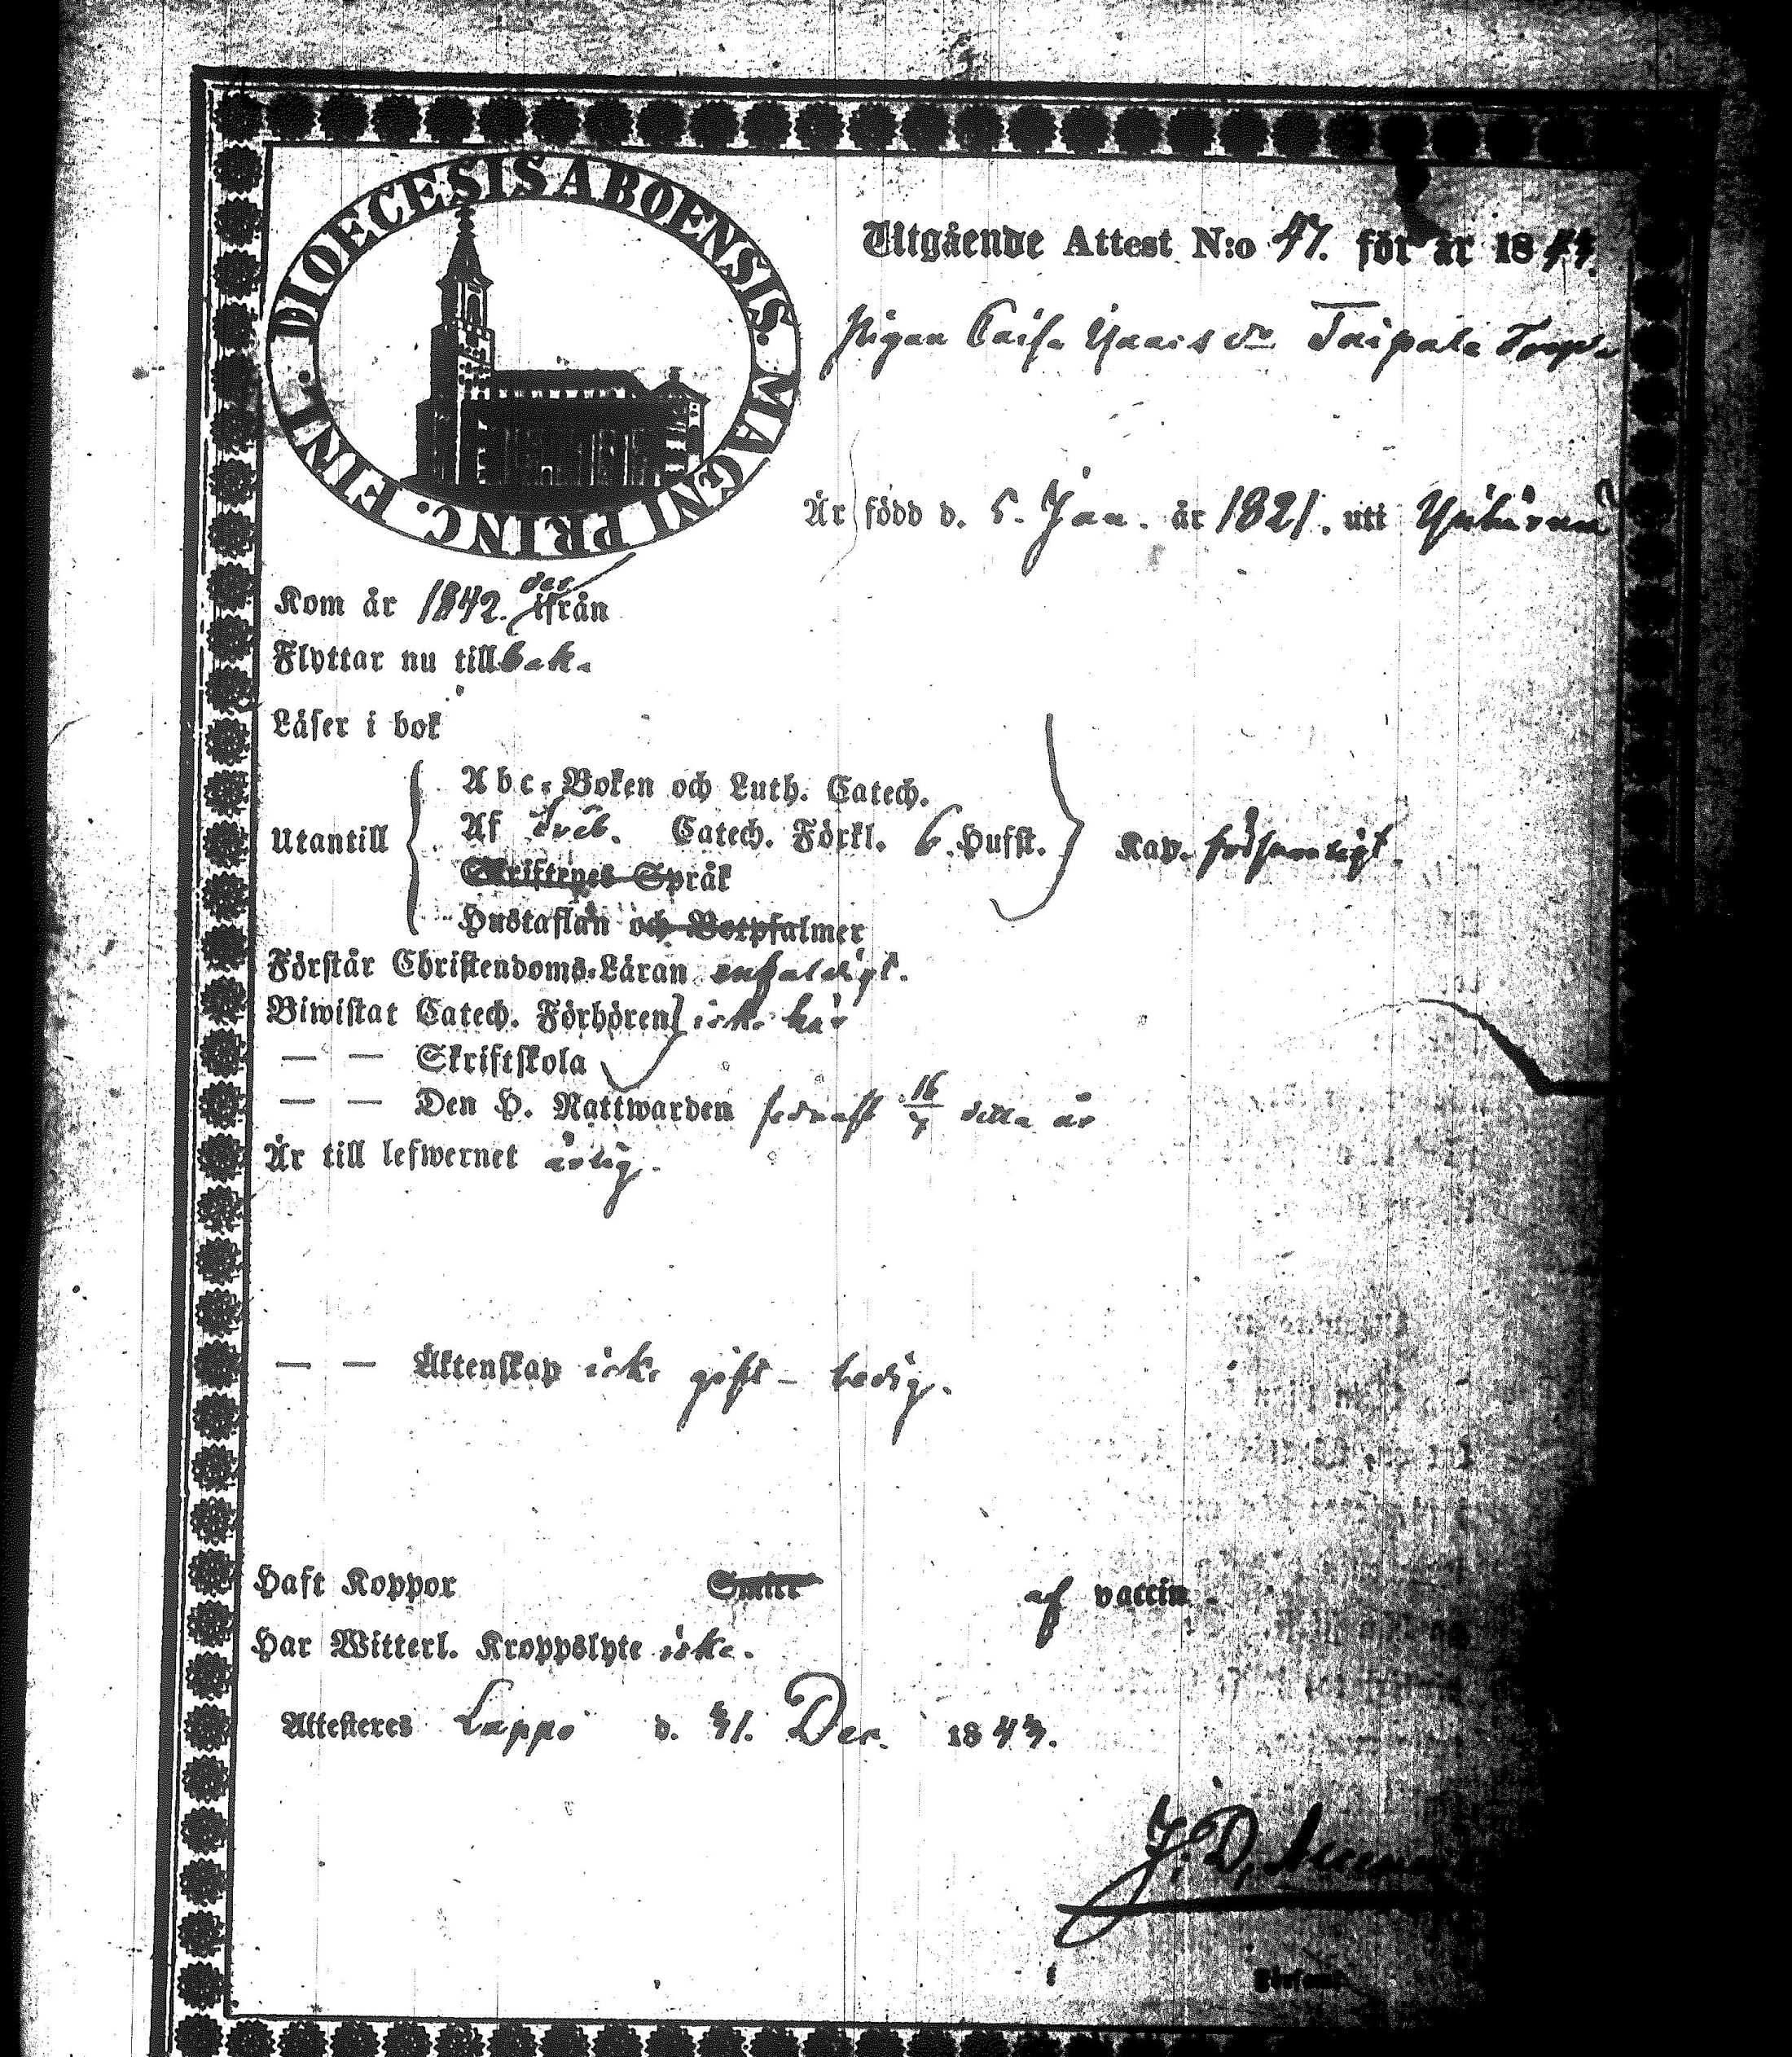 DIOECESIS ABOENSIS. MAGNI PRINC. FINL.
Utgående Attest N:o 47. för år 1843.
Pigan Caisa Taipale
Är född d. 5. Jan. år 1821. uti
Kom år 1842. der ifrån
Flyttar nu tillbaka
Läser i bok
Abc-Boken och Luth. Catech.
Utantill Af Sveb. Catech. Förkl. 6. Hufst. Kap. försvarligt.
Skriftenes Språk
Hustaflan och Botpsalmer
Förstår Christendoms-Läran enfaldigt.
Biwistat Catech. Förhören icke här
— — Skriftskola
— — Den H. Nattwarden sednast 16/7 detta år
Är till lefwernet ärlig.
— — Äktenskap icke gift – ledig.
Haft Koppor Smitt af vaccin.
Har Witterl. Kroppslyte icke.
Attesteres Lappo d. 31. Dec. 1843.
J. D.